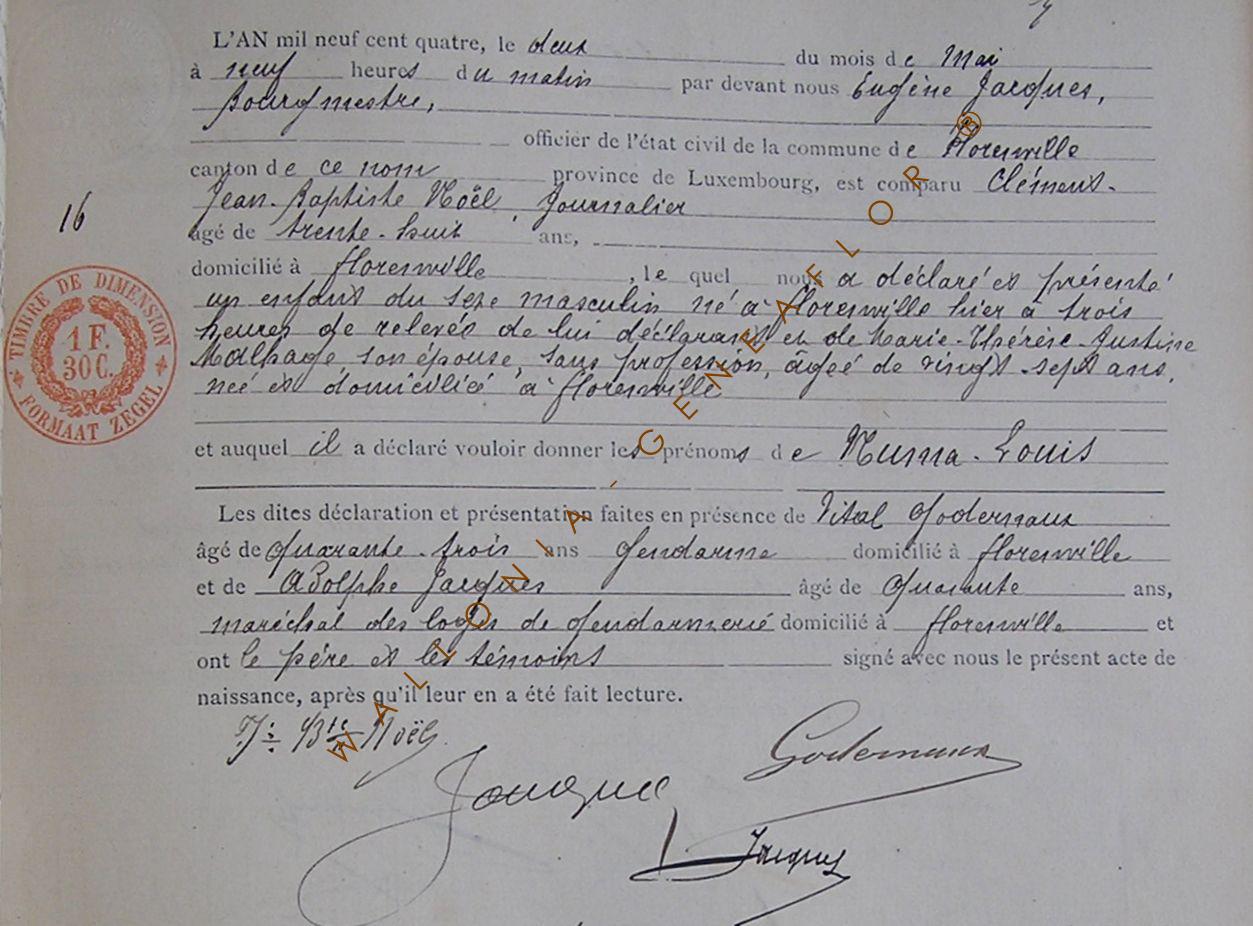 L'AN mil neuf cent quatre, le deux du mois de Mai
à neuf heures du matin par devant nous Eugène Jacques,
Bourgmestre,
officier de l'état civil de la commune de Florenville
canton de ce nom province de Luxembourg, est comparu Clément-
Jean-Baptiste Noël, Journalier
16
âgé de trente-huit ans,
domicilié à florenville, le quel nous a déclaré et présenté
un enfant du sexe masculin né à florenville hier à trois
heures de relevée de lui déclarant et de Marie-Thérèse-Justine
Malhage, son épouse, sans profession, âgée de vingt-sept ans,
née et domiciliée à florenville
TIMBRE DE DIMENSION
1 F.
30 C.
FORMAAT ZEGEL
et auquel il a déclaré vouloir donner les prénoms de Numa-Louis
Les dites déclaration et présentation faites en présence de Vital Godernaux
âgé de quarante-trois ans Gendarme domicilié à florenville
et de Adolphe Jacques âgé de quarante ans,
maréchal des logis de gendarmerie domicilié à florenville et
ont le père et les témoins signé avec nous le présent acte de
naissance, après qu'il leur en a été fait lecture.
J. Bte Noël
Godernaux
Jacques
Jacques
WALLONIA-GENEAFLOR®